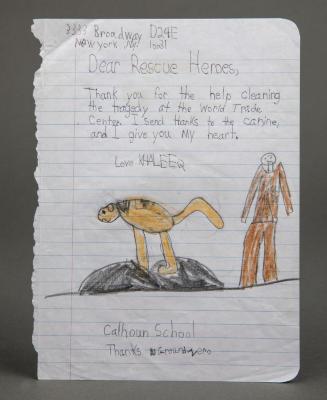 3333 Broadway D24E
New York NY. 10031
Dear Rescue Heroes,
Thank you for the help cleaning
the tragedy at the World Trade
Center. I send thanks to the canine,
and I give you my heart.
Love KHALEEQ
Calhoun School
Thanks Ground zero